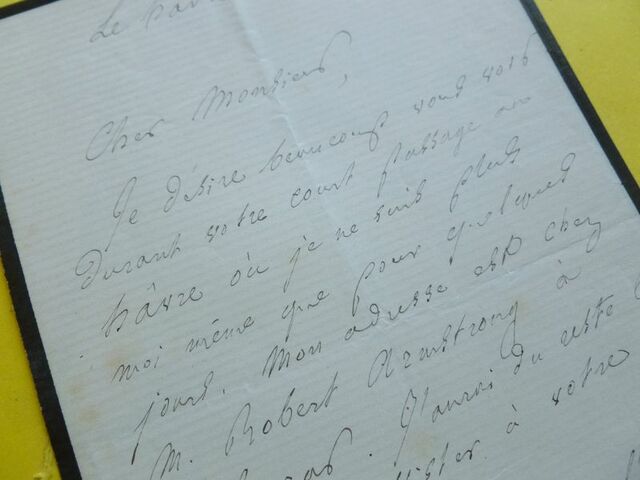 Le hav
Cher Monsieur,
Je désire beaucoup vous voir
durant votre court passage au
hâvre où je ne suis plus
moi même que pour quelques
jours. Mon adresse est chez
M. Robert Armstrong à
J'aurai du reste
à votre